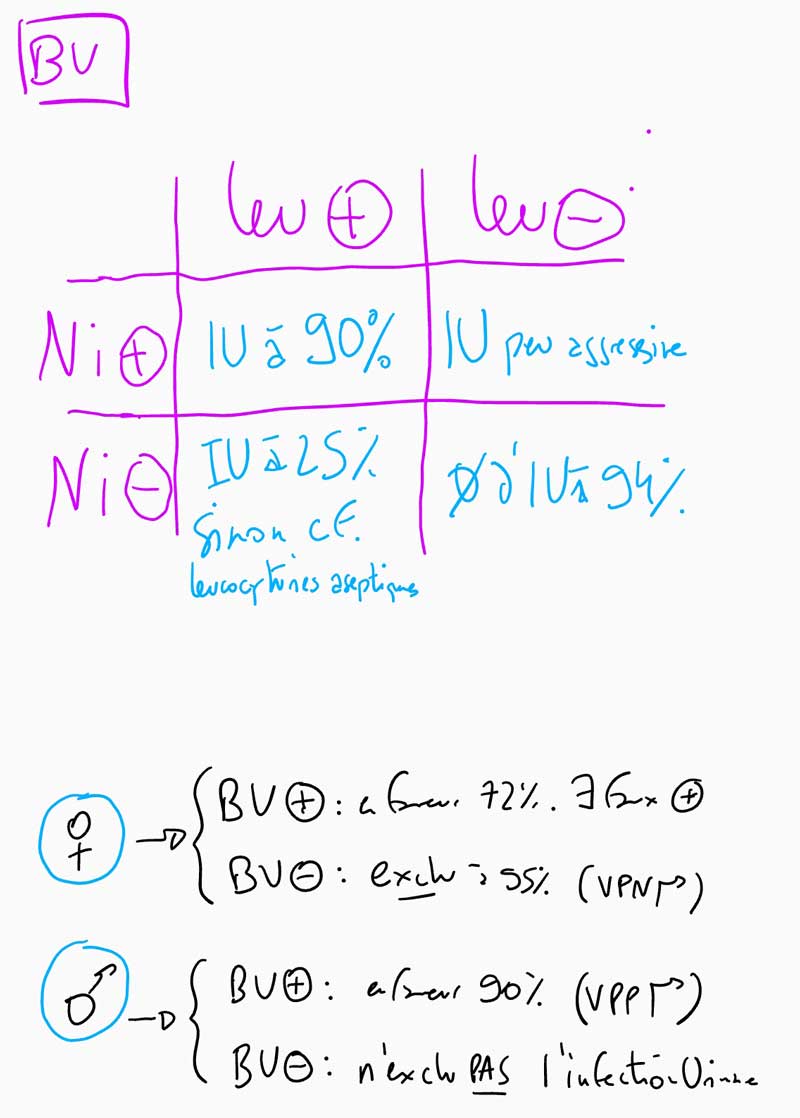 BU
leu ⊕ leu ⊖
Ni ⊕ IU à 90% IU peu aggressive
Ni ⊖ IU à 25% Ø d'IU à 94%
Sinon cf.
leucocyturies aseptiques
♀ → BU ⊕ : en faveur 72%. ∃ faux ⊕
BU ⊖ : exclu à 95% (VPN ↗)
♂ → BU ⊕ : en faveur 90% (VPP ↗)
BU ⊖ : n'exclu PAS l'infection Urinaire